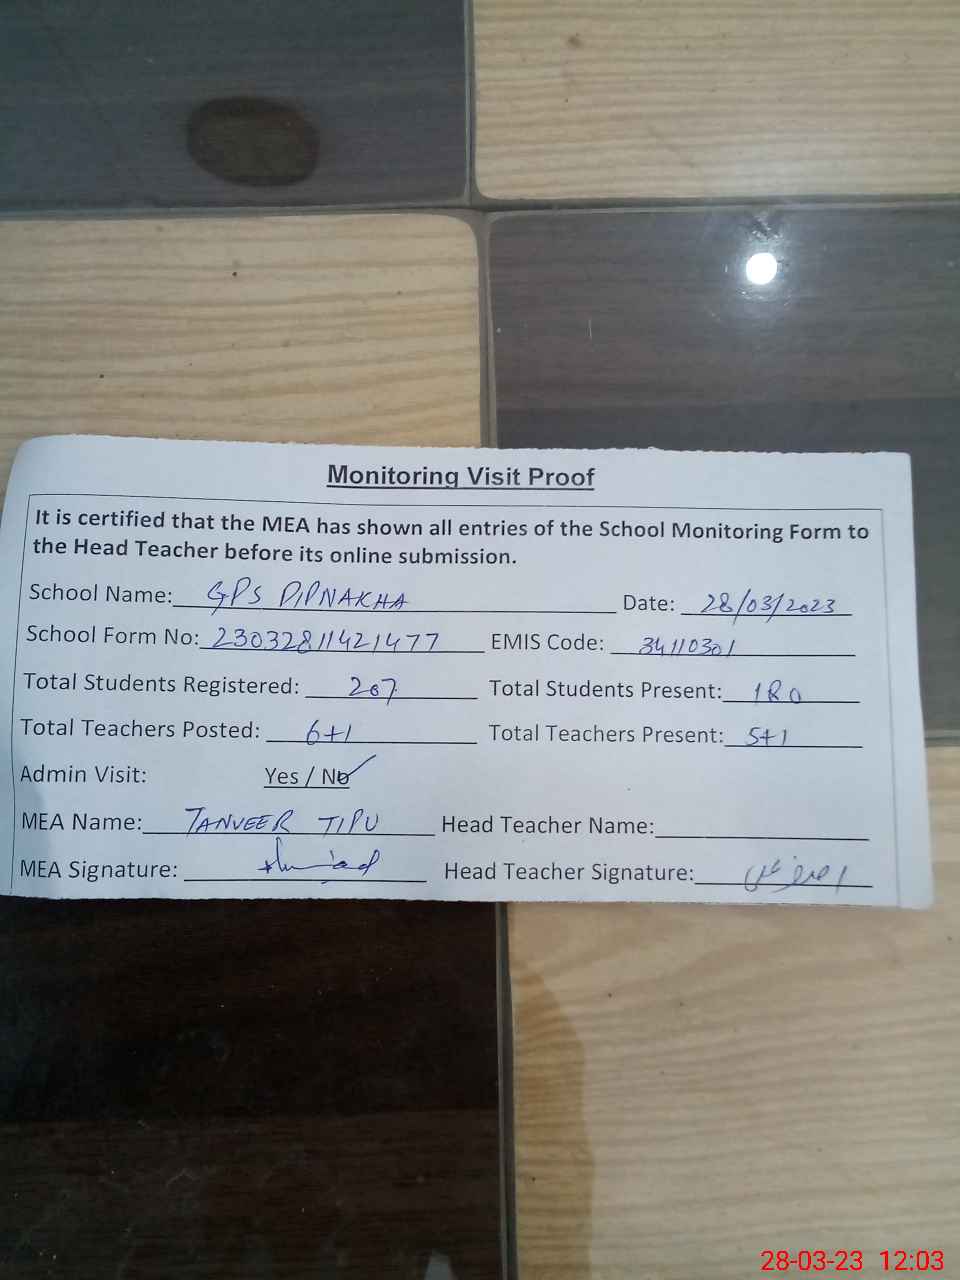 Monitoring Visit Proof
It is certified that the MEA has shown all entries of the School Monitoring Form to
the Head Teacher before its online submission.
School Name: GPS PIPNAKHA Date: 28/03/2023
School Form No: 23032811421477 EMIS Code: 34110301
Total Students Registered: 207 Total Students Present: 180
Total Teachers Posted: 6+1 Total Teachers Present: 5+1
Admin Visit: Yes / No
MEA Name: TANVEER TIPU Head Teacher Name:
MEA Signature: Head Teacher Signature:
28-03-23 12:03